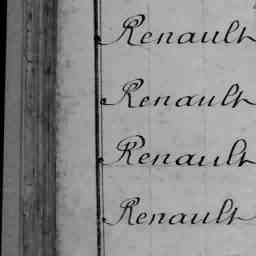 Renault
Renault
Renault
Renault